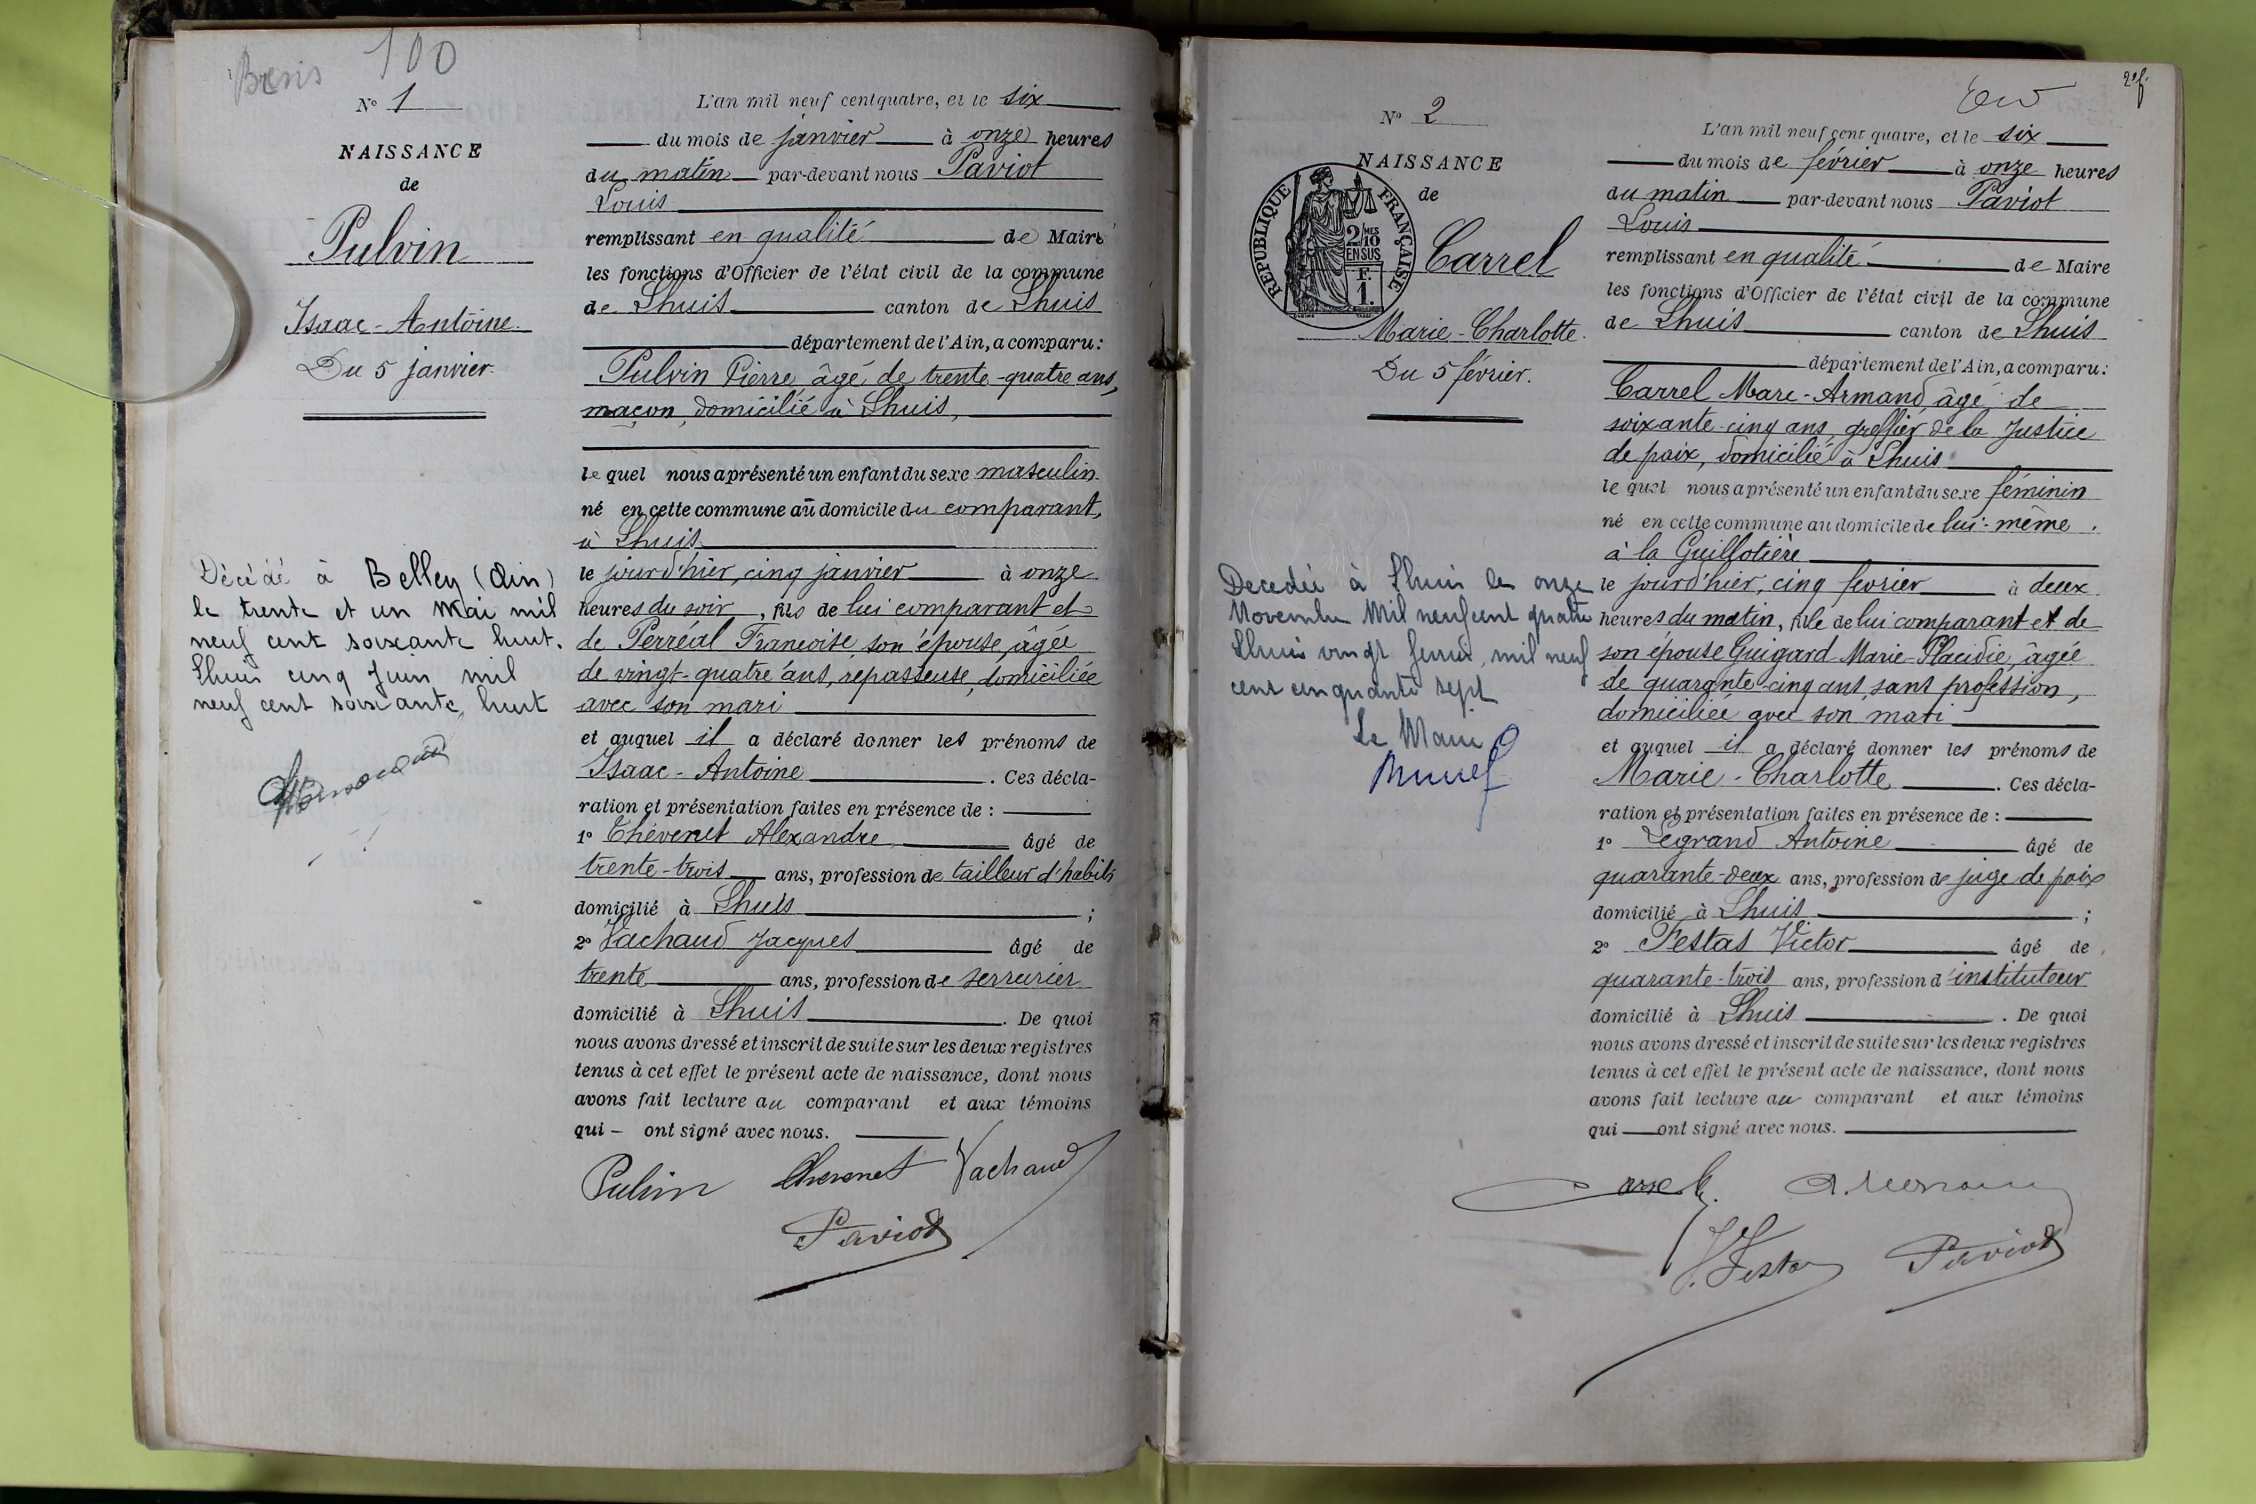 100
N° 1
NAISSANCE
de
Pulvin
Isaac-Antoine.
Du 5 janvier.
Décédé à Belley (Ain)
le trente et un Mai mil
neuf cent soixante huit.
Lhuis cinq Juin mil
neuf cent soixante huit
L'an mil neuf cent quatre, et le six
du mois de janvier à onze heures
du matin par-devant nous Paviot
Louis
remplissant en qualité de Maire
les fonctions d'Officier de l'état civil de la commune
de Lhuis canton de Lhuis
département de l'Ain, a comparu :
Pulvin Pierre, âgé de trente-quatre ans,
maçon, domicilié à Lhuis,
le quel nous a présenté un enfant du sexe masculin
né en cette commune au domicile du comparant,
à Lhuis
le jourd'hier, cinq janvier à onze
heures du soir, fils de lui comparant et
de Perréal Françoise son épouse, âgée
de vingt-quatre ans, repasseuse, domiciliée
avec son mari
et auquel il a déclaré donner les prénoms de
Isaac-Antoine. Ces décla-
ration et présentation faites en présence de :
1° Thévenet Alexandre âgé de
trente-trois ans, profession de tailleur d'habits
domicilié à Lhuis ;
2° Vachaud Jacques âgé de
trente ans, profession de serrurier
domicilié à Lhuis. De quoi
nous avons dressé et inscrit de suite sur les deux registres
tenus à cet effet le présent acte de naissance, dont nous
avons fait lecture au comparant et aux témoins
qui – ont signé avec nous.
Pulvin Thevenet Vachaud
Paviot
2 f.
N° 2
NAISSANCE
de
REPUBLIQUE FRANÇAISE
2/10 MES
EN SUS
F.
1.
Carrel
Marie-Charlotte.
Du 5 février.
Decedée à Lhuis le onze
Novembre Mil neuf cent quatre
Lhuis vingt mil neuf
cent cinquante sept
Le Maire
L'an mil neuf cent quatre, et le six
du mois de février à onze heures
du matin par-devant nous Paviot
Louis
remplissant en qualité de Maire
les fonctions d'Officier de l'état civil de la commune
de Lhuis canton de Lhuis
département de l'Ain, a comparu :
Carrel Marc-Armand, âgé de
soixante-cinq ans, greffier de la Justice
de paix, domicilié à Lhuis
le quel nous a présenté un enfant du sexe féminin
né en cette commune au domicile de lui-même.
à la Guillotière
le jourd'hier, cinq fevrier à deux
heures du matin, fille de lui comparant et de
son épouse Guigard Marie-Placidie, âgée
de quarante-cinq ans, sans profession,
domiciliée avec son mari
et auquel il a déclaré donner les prénoms de
Marie-Charlotte. Ces décla-
ration et présentation faites en présence de :
1° Legrand Antoine âgé de
quarante-deux ans, profession de juge de paix
domicilié à Lhuis ;
2° Festas Victor âgé de
quarante-trois ans, profession d'instituteur
domicilié à Lhuis. De quoi
nous avons dressé et inscrit de suite sur les deux registres
tenus à cet effet le présent acte de naissance, dont nous
avons fait lecture au comparant et aux témoins
qui ont signé avec nous.
V. Festas Paviot